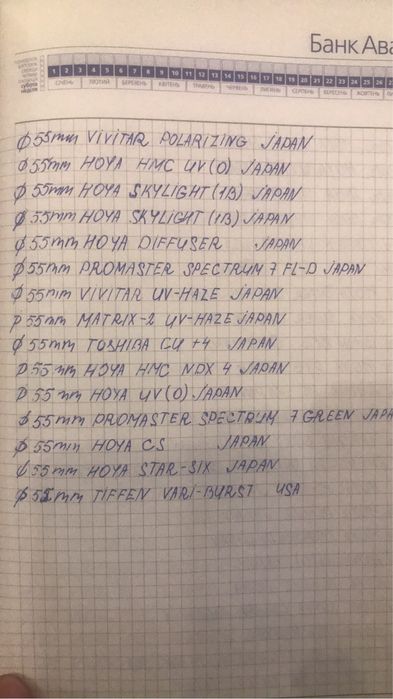 Банк Ава
1 2 3 4 5 6 7 8 9 10 11 12 13 14 15 16 17 18 19 20 21 22 23 24 25 26
СІЧЕНЬ ЛЮТИЙ БЕРЕЗЕНЬ КВІТЕНЬ ТРАВЕНЬ ЧЕРВЕНЬ ЛИПЕНЬ СЕРПЕНЬ ВЕРЕСЕНЬ ЖОВТЕНЬ
φ 55mm VIVITAR POLARIZING JAPAN
φ 55mm HOYA HMC UV(0) JAPAN
φ 55mm HOYA SKYLIGHT (1B) JAPAN
φ 55mm HOYA SKYLIGHT (1B) JAPAN
φ 55mm HOYA DIFFUSER JAPAN
φ 55mm PROMASTER SPECTRUM 7 FL-D JAPAN
φ 55mm VIVITAR UV-HAZE JAPAN
φ 55mm MATRIX-2 UV-HAZE JAPAN
φ 55mm TOSHIBA CU +4 JAPAN
φ 55mm HOYA HMC NDX 4 JAPAN
φ 55mm HOYA UV(0) JAPAN
φ 55mm PROMASTER SPECTRUM 7 GREEN JAPA
φ 55mm HOYA CS JAPAN
φ 55mm HOYA STAR-SIX JAPAN
φ 55mm TIFFEN VARI-BURST USA